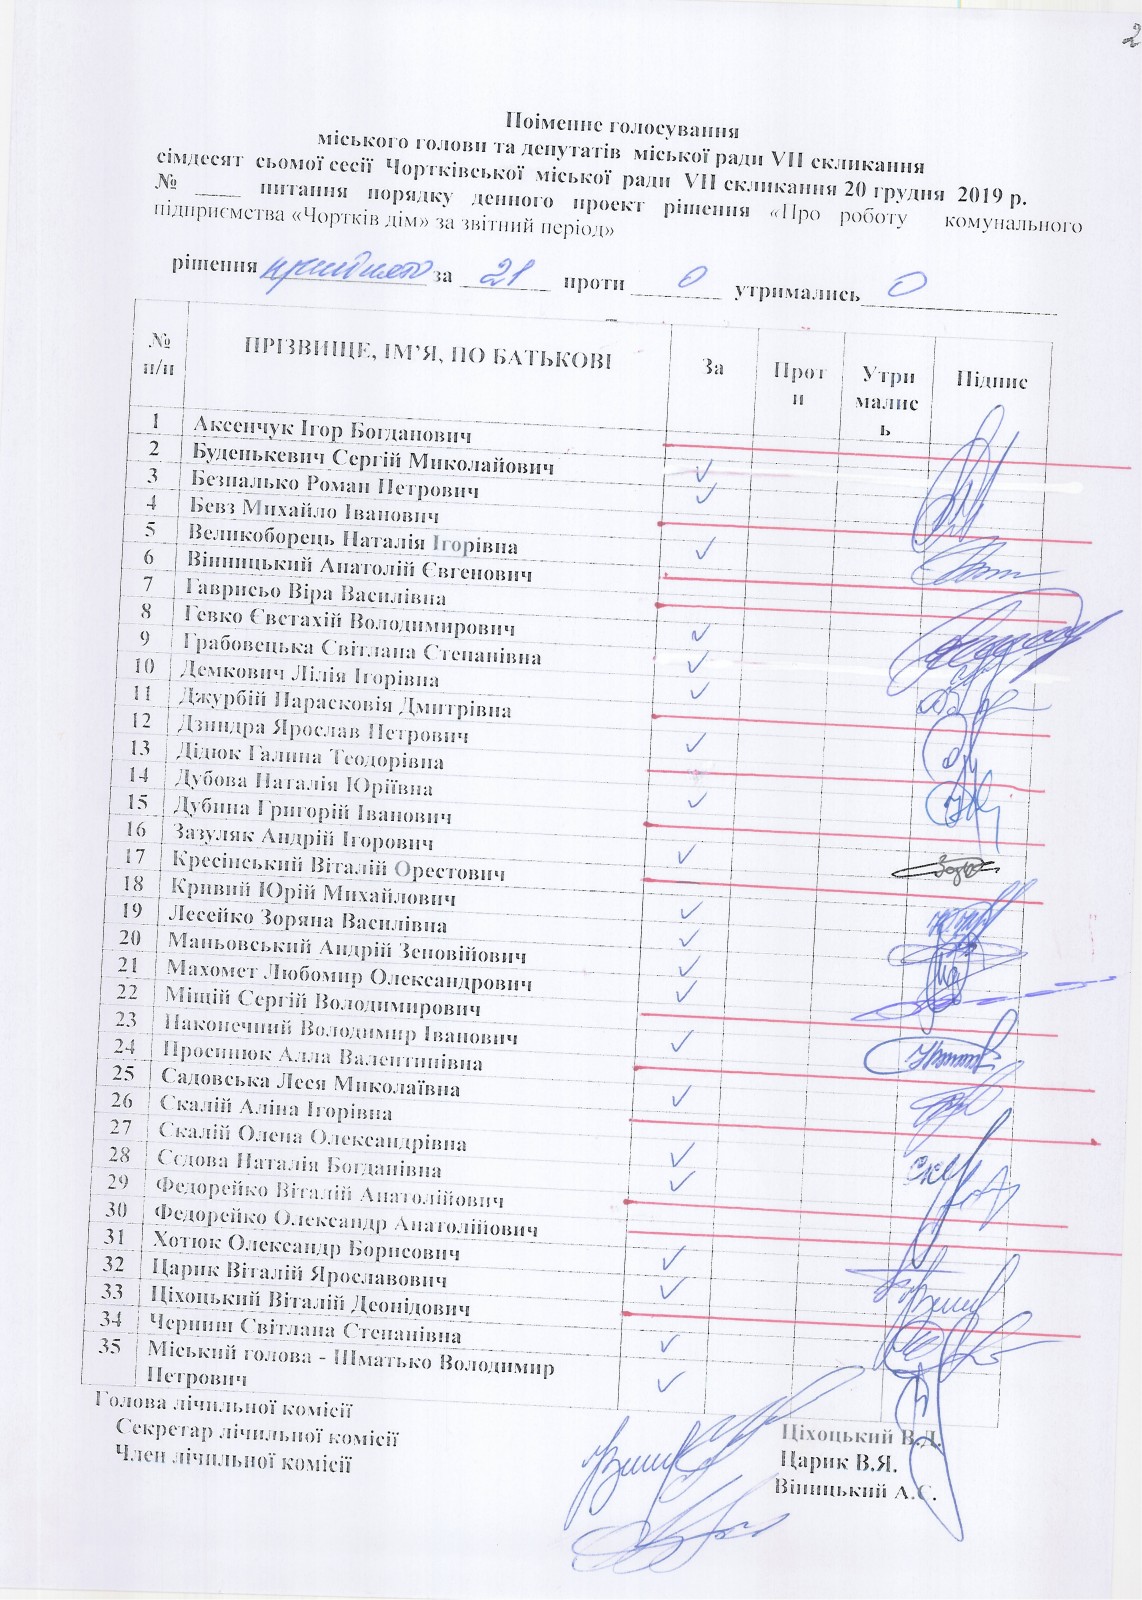 2
Поіменне голосування
міського голови та депутатів міської ради VII скликання
сімдесят сьомої сесії Чортківської міської ради VII скликання 20 грудня 2019 р.
№ ____ питання порядку денного проект рішення «Про роботу комунального
підприємства «Чортків дім» за звітний період»
рішення прийнято за 21 проти 0 утримались 0
№ п/п ПРІЗВИЩЕ, ІМ’Я, ПО БАТЬКОВІ За Проти Утрималися Підпис
1 Аксенчук Ігор Богданович
2 Буденькевич Сергій Миколайович
3 Безпалько Роман Петрович
4 Бевз Михайло Іванович
5 Великоборець Наталія Ігорівна
6 Вінницький Анатолій Євгенович
7 Гаврисьо Віра Василівна
8 Гевко Євстахій Володимирович
9 Грабовецька Світлана Степанівна
10 Демкович Лілія Ігорівна
11 Джурбій Парасковія Дмитрівна
12 Дзиндра Ярослав Петрович
13 Дідюк Галина Теодорівна
14 Дубова Наталія Юріївна
15 Дубина Григорій Іванович
16 Зазуляк Андрій Ігорович
17 Кресінський Віталій Орестович
18 Кривий Юрій Михайлович
19 Лесейко Зоряна Василівна
20 Маньовський Андрій Зеновійович
21 Махомет Любомир Олександрович
22 Міщій Сергій Володимирович
23 Наконечний Володимир Іванович
24 Просинюк Алла Валентинівна
25 Садовська Леся Миколаївна
26 Скалій Аліна Ігорівна
27 Скалій Олена Олександрівна
28 Сєдова Наталія Богданівна
29 Федорейко Віталій Анатолійович
30 Федорейко Олександр Анатолійович
31 Хотюк Олександр Борисович
32 Царик Віталій Ярославович
33 Ціхоцький Віталій Деонідович
34 Черниш Світлана Степанівна
35 Міський голова - Шматько Володимир
Петрович
Голова лічильної комісії Ціхоцький В.Д.
Секретар лічильної комісії Царик В.Я.
Член лічильної комісії Віницький А.Є.